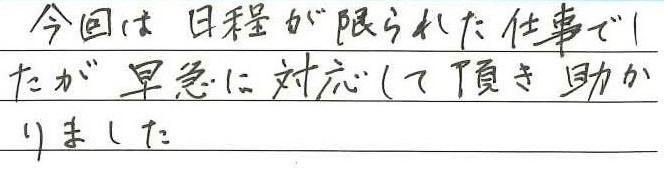 今回は日程が限られた仕事でし
たが早急に対応して頂き助か
りました